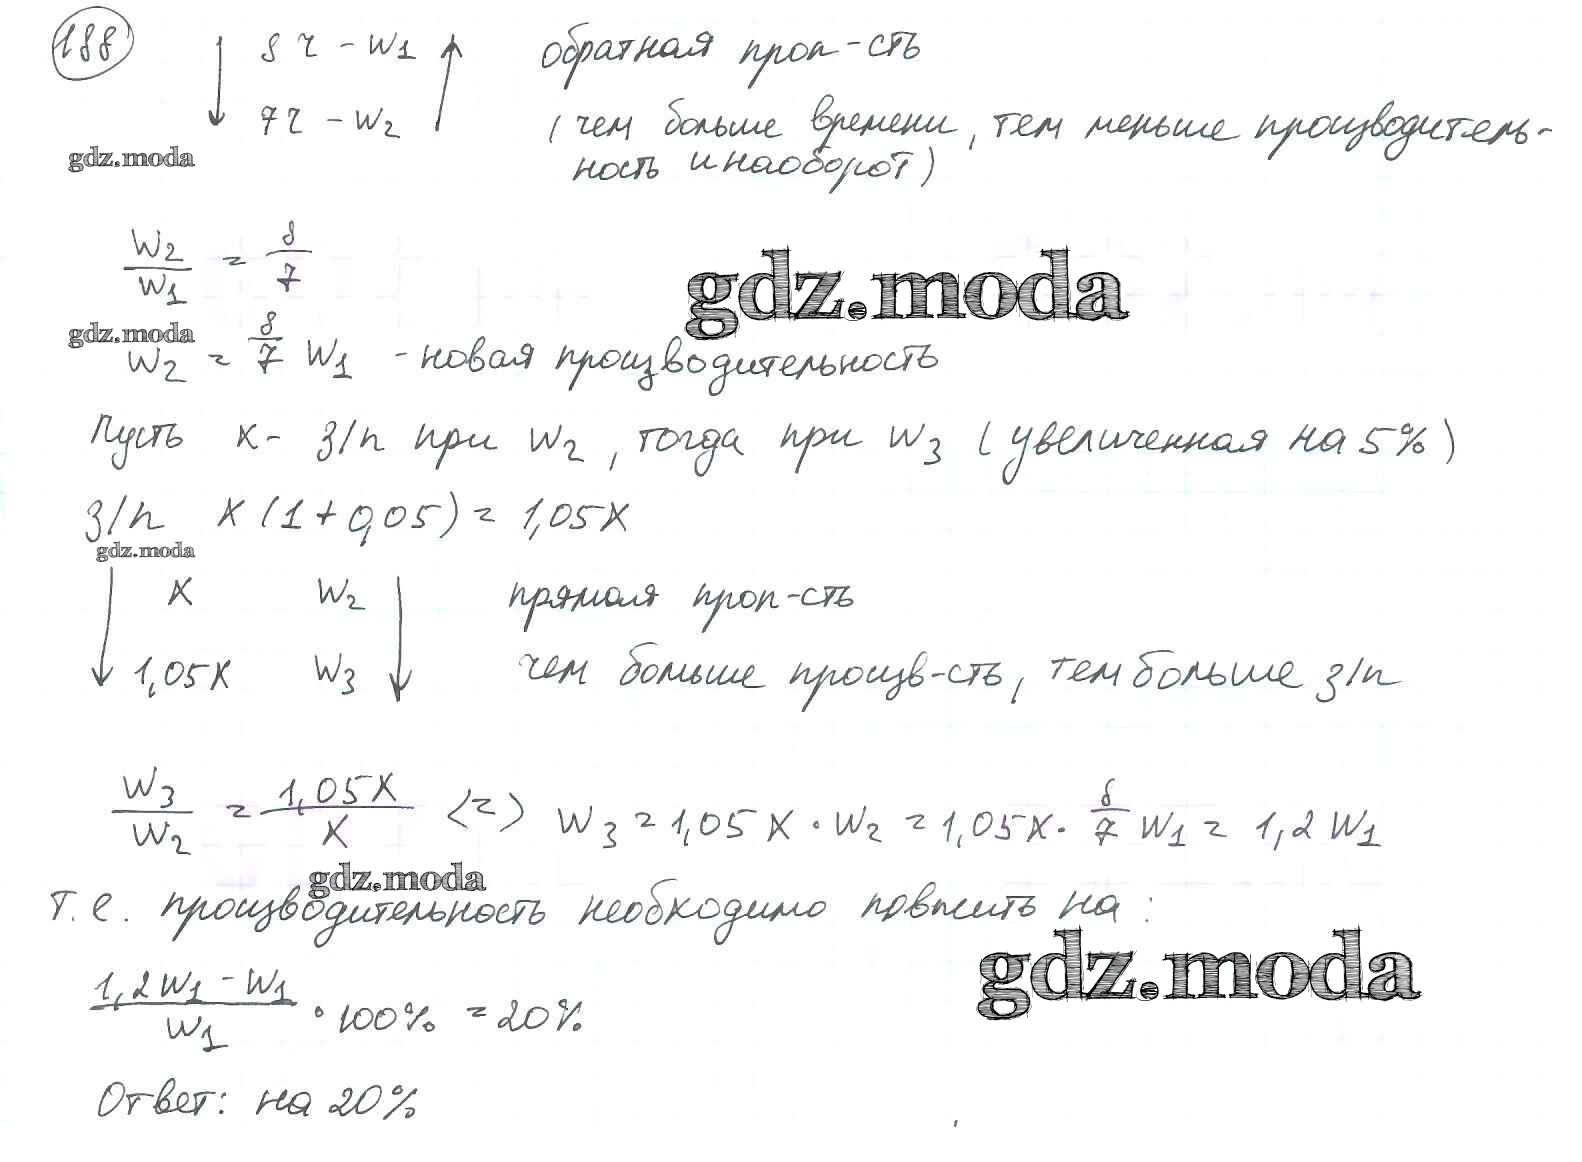 188 8 ч - W1 обратная проп-сть
7 ч - W2 (чем больше времени, тем меньше производитель-
gdz.moda ность и наоборот)
W2/W1 = 8/7
gdz.moda
gdz.moda
W2 = 8/7 W1 - новая производительность
Пусть x - з/п при W2, тогда при W3 (увеличенная на 5%)
з/п x(1+0,05) = 1,05x
gdz.moda
x W2 прямая проп-сть
1,05x W3 чем больше произв-сть, тем больше з/п
W3/W2 = 1,05x/x <=> W3 = 1,05x · W2 = 1,05x · 8/7 W1 = 1,2 W1
gdz.moda
т.е. производительность необходимо повысить на:
gdz.moda
1,2W1 - W1/W1 · 100% = 20%
Ответ: на 20%